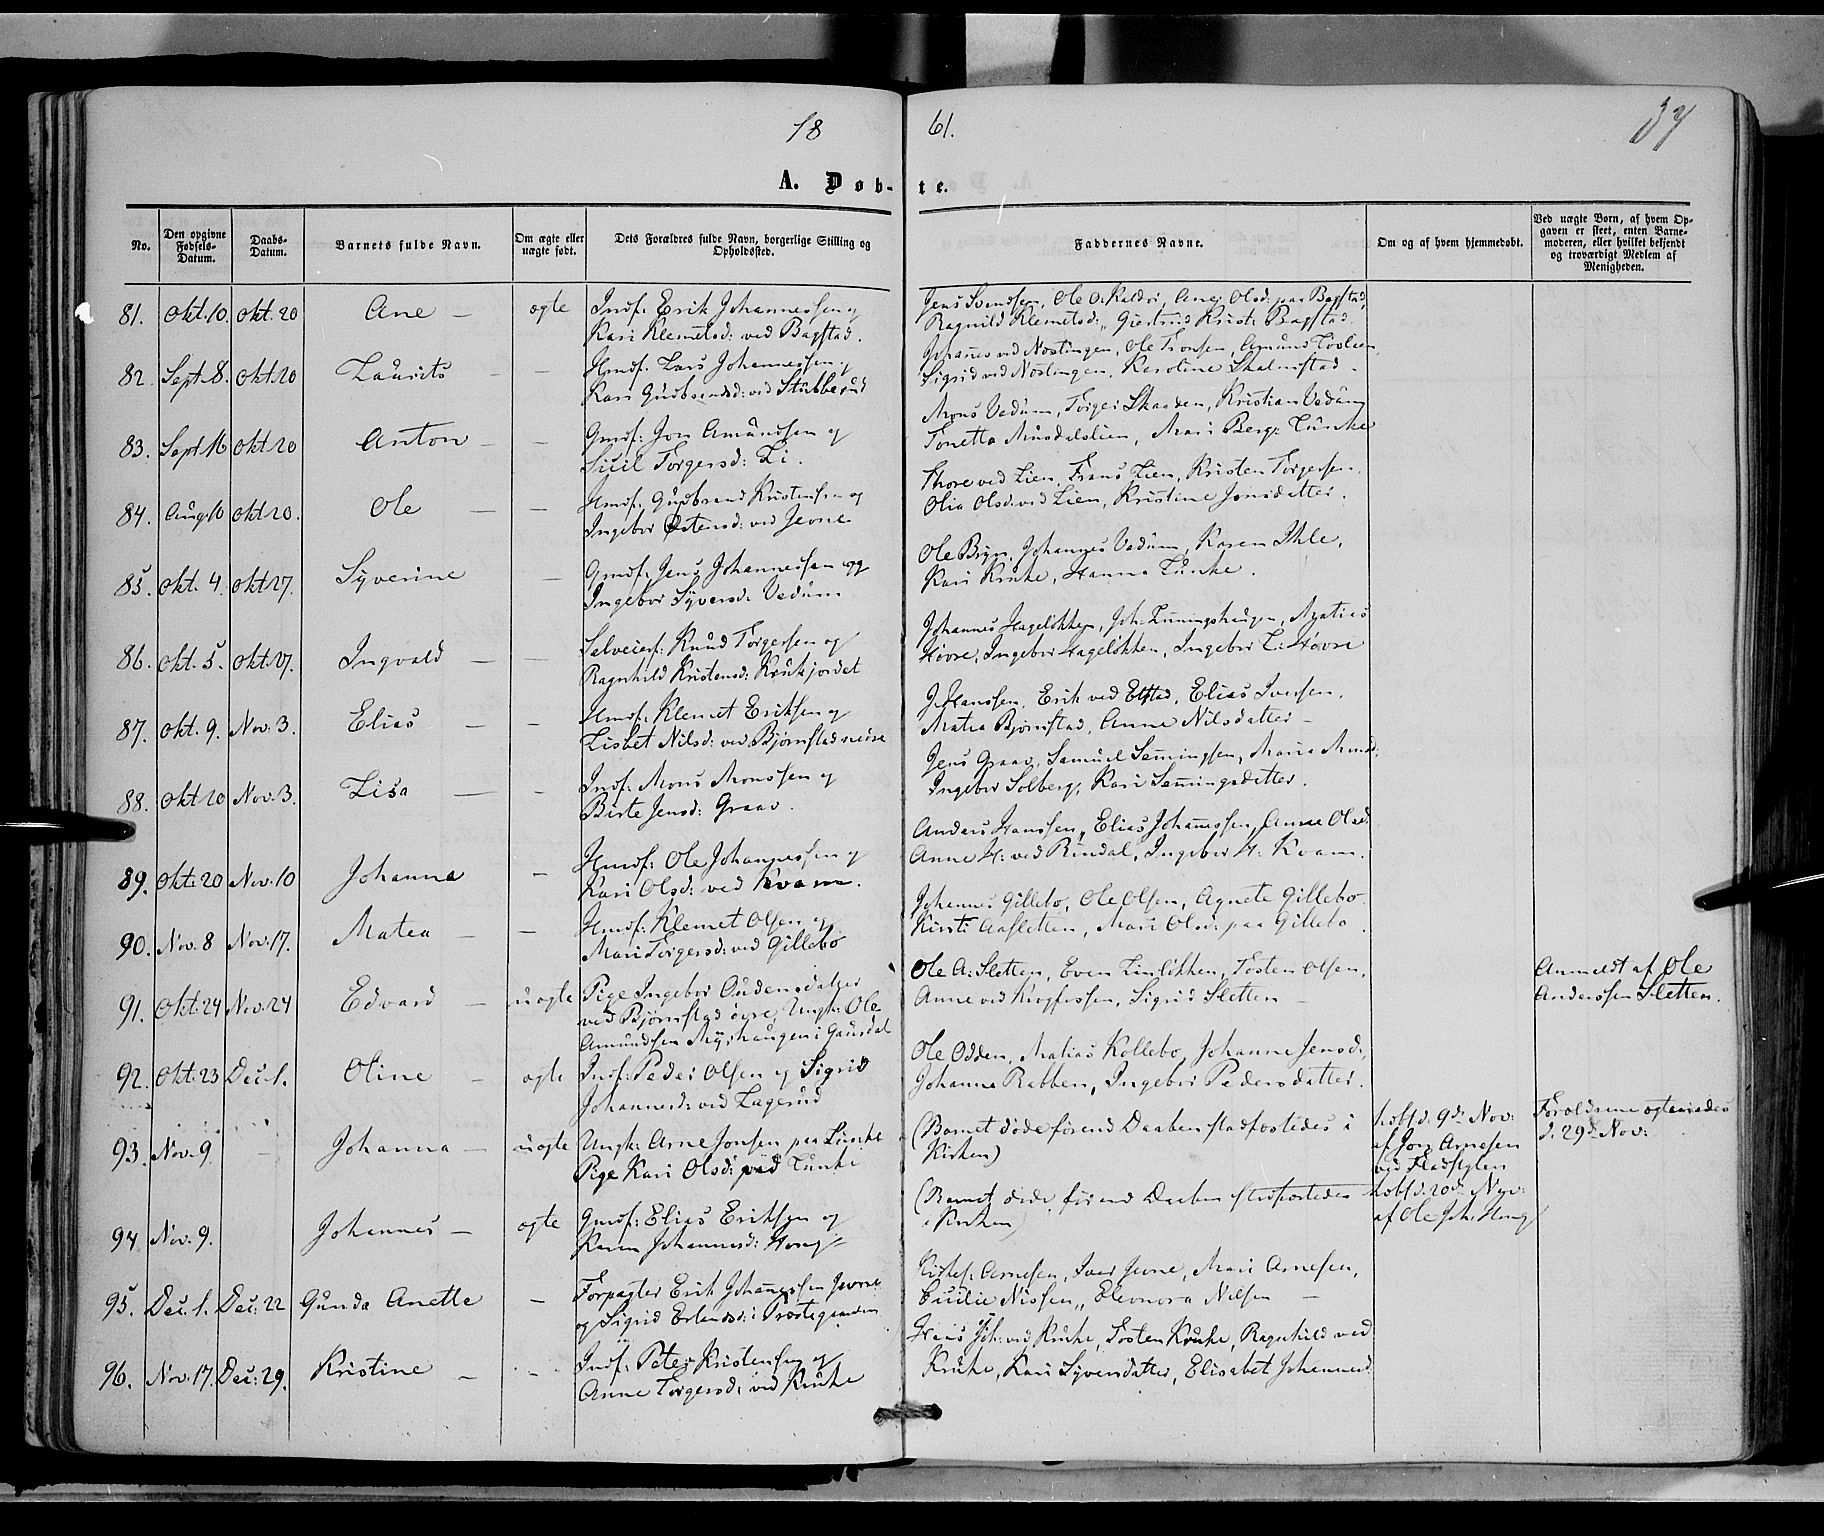 18 61. 37
A. Døb- te.
No. Den opgivne Fødsels-Datum. Daabs-Datum. Barnets fulde Navn. Om ægte eller uægte født. Dets Forældres fulde Navn, borgerlige Stilling og Opholdssted. Faddernes Navne. Om og af hvem hjemmedøbt. Ved uægte Børn, af hvem Opgaven er skeet, enten Barnemoderen, eller hvilket bekjendt og troværdigt Medlem af Menigheden.
81. Okt. 10. Okt. 20 Ane – ægte Indf: Erik Johannessen og
Kari Klemetsd: ved Bagstad.
Jens Svendsen, Ole O: Kalder, Ane Olsd: paa Bagstad,
Ragnild Klemetsd:, Giertrud Krist: Bagstad.
82. Sept. 8. Okt. 20 Laurits – – Hmdf: Lars Johannessen og
Kari Gudbrandsd: ved Stubberud
Johannes ved Nøstingen, Ole Tronsen, Amund
Sigrid ved Nøstingen, Karoline Skalmstad –
83. Sept. 16 Okt. 20 Anton – – Gmdf: Jon Amundsen og
Sicil Torgersd: Li.
Mons Vedum, Torger Skaaden, Kristian Vedum
Tonetta Musdalslien, Mari Berg: Lunke
84. Aug. 10 Okt. 20. Ole – – Hmdf: Gudbrand Kristensen og
Ingebor Østensd: ved Jevne
Thore ved Lien, Frans Lien, Kristen Torgersen.
Olia Olsd: ved Lien, Kristine Jonsdatter.
85. Okt. 4. Okt. 27. Syverine – Gmdf: Jens Johannessen og
Ingebor Syversd: Vedum
Ole Bryn, Johannes Vedum, Karen Ihle,
Kari Kruke, Hanna Lunke.
86. Okt. 5. Okt. 27. Ingvald – – Selveierf: Knud Torgersen og
Ragnhild Kristensd: Krukjordet
Johannes Hageløkken, Joh: Lunningshaugen, Matias
Høvre, Ingebor Hageløkken, Ingebor L: Høvre
87. Okt. 9. Nov: 3. Elias – – Hmdf: Klemet Eriksen og
Lisbet Nilsd: ved Bjørnstad nedre
J Hanssen, Erik ved Elstad, Elias Iversen,
Matea Bjørnstad, Anne Nilsdatter –
88. Okt 20 Nov: 3. Lisa – – Indf: Mons Monssen og
Birte Jensd: Graav.
Jens Graav, Samuel Semmingsen, Maria Monsd:
Ingebor Solberg, Kari Semingsdatter.
89. Okt: 20 Nov: 10 Johanna – Hmdf: Ole Johannessen og
Kari Olsd: ved Kvam.
Anders Hanssen, Elias Johanessen, Anne Olsd:
Anne H: ved Rindal, Ingebor H: Kvam.
90. Nov: 8 Nov: 17. Matea – – Hmdf: Klemet Olsen og
Mari Torgersd: ved Gillebo
Johannes Gillebo, Ole Olsen, Agnete Gillebo
Kirsti Aasletten, Mari Olsd: paa Gillebo.
91. Okt: 24 Nov: 24 Edvard – uægte Pige Ingebor Audensdatter
ved Bjørnstad øvre, Ungk: Ole
Amundsen Myrhaugen i Gausdal
Ole A: Sletten, Even Linløkken, Tosten Olsen,
Anne ved Krogfossen, Sigrid Sletten –
Anmeldt af Ole
Anderssen Sletten.
92. Okt: 23 Dec: 1. Oline – ægte Indf: Peder Olsen og Sigrid
Johannesd: ved Lagerud
Ole Odden, Matias Kollebo, Johanne Jensd:,
Johanna Rabben, Ingebor Pedersdatter.
93. Nov: 9. – Johanna – uægte Ungk: Arne Jonsen paa Lunke
Pige Kari Olsd: ved Lunke
(Barnet døde førend Daaben stadfæstedes i
Kirken)
hdbt d. 9de Nov:
af Jon Arnesen
ved
Forældrene ægteviedes
d. 29de Nov:
94. Nov: 9. Johannes – ægte Gmdf: Elias Eriksen og
Karen Johannesd: Hong
(Barnet døde førend Daaben stadfæstedes
i Kirken)
hdbt d. 20de Nov:
af Ole Joh: Hong
95. Dec: 1. Dec: 22 Gunda Anette – Forpagter Erik Johannessen Jevne
og Sigrid Erlandsd: i Præstegaarden
Kistef: Arnesen, Iver Jevne, Mari Arnesen,
Cecilie Nissen, Eleonora Nilsen –
96. Nov: 17. Dec: 29. Kristine – – Indf: Peter Kristensen og
Anne Torgersd: ved Kruke
Hans Joh: ved Kruke, Tosten Kruke, Ragnhild ved
Kruke, Kari Syversdatter, Elisabet Johannesd: